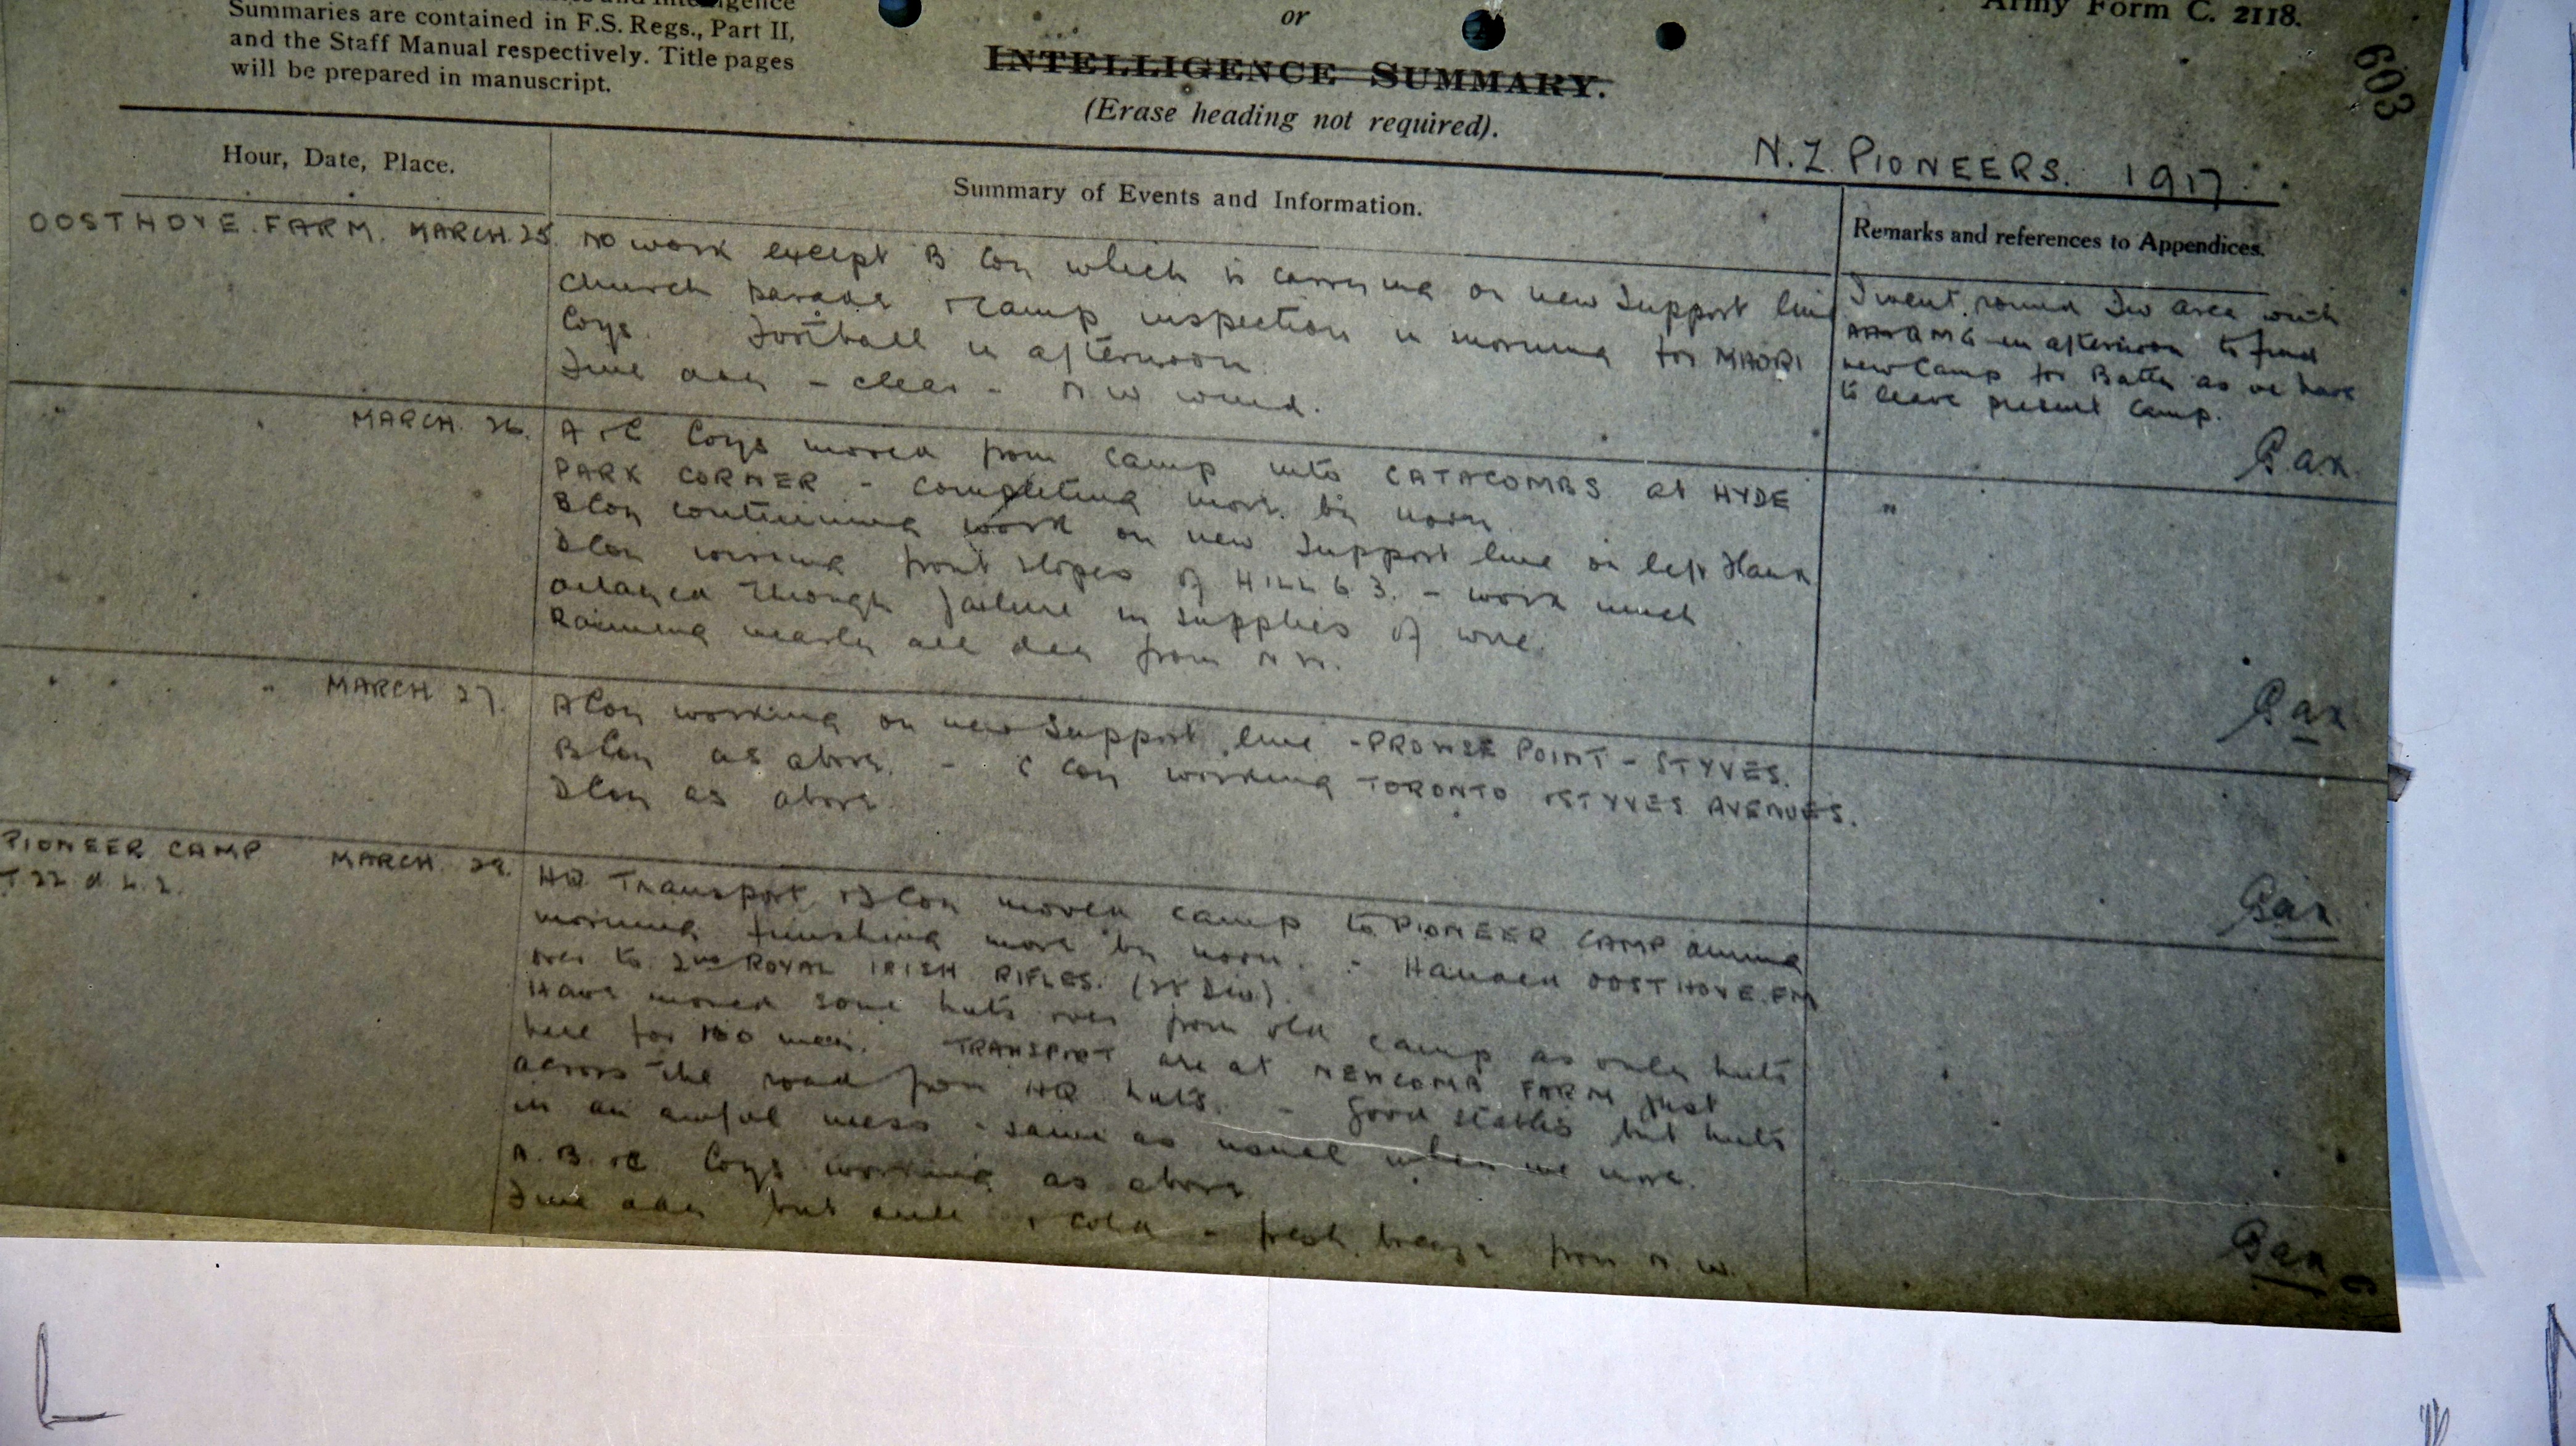 Intelligence
Summaries are contained in F.S. Regs., Part II,
and the Staff Manual respectively. Title pages
will be prepared in manuscript.
or
INTELLIGENCE SUMMARY.
(Erase heading not required).
Army Form C. 2118.
603
N.Z. PIONEERS. 1917.
Hour, Date, Place.
Summary of Events and Information.
Remarks and references to Appendices.
OOSTHOVE. FARM. MARCH. 25.
No work except B Coy which is carrying on new Support line
Church parade & camp inspection in morning for MAORI
Coys. Football in afternoon.
Fine day - clear - N W wind.
I went round Div area with
in afternoon to find
new Camp for Battn as we have
to leave present camp.
" " MARCH. 26.
A & C Coys moved from camp into CATACOMBS at HYDE
PARK CORNER - completing move by noon.
B Coy continuing work on new Support line on left flank
D Coy wiring front slopes of HILL 63. - work much
delayed through failure in supplies of wire.
Raining nearly all day from N W.
"
" " " MARCH 27.
A Coy working on new Support line - PROWSE POINT - ST YVES.
B Coy as above. - C Coy working TORONTO & ST YVES AVENUES.
D Coy as above.
PIONEER CAMP MARCH. 28.
T 22 d 4.2.
HQ Transport & D Coy moved camp to PIONEER CAMP during
morning finishing move by noon. - Handed OOSTHOVE. FM
over to 2nd ROYAL IRISH RIFLES. (25 Div).
Have moved some huts over from old camp as only huts
here for 160 men. TRANSPORT are at NEWCOMB FARM just
across the road from HQ huts. - Good stables but huts
in an awful mess - same as usual when we move.
A. B. & C. Coys working as above
Fine day but dull & cold - fresh breeze from N. W.